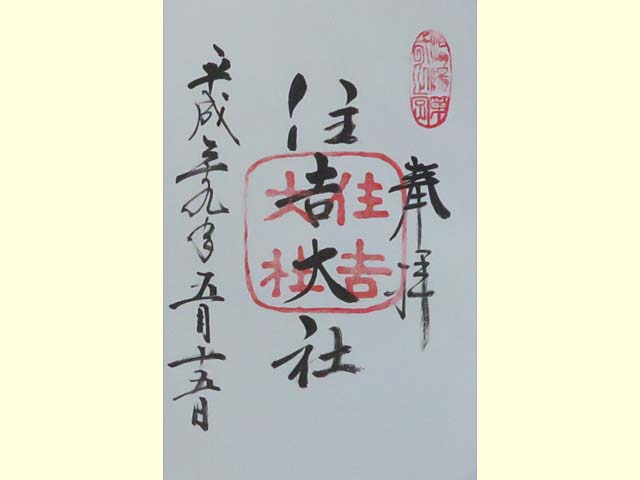 奉拝
住吉大社
住吉大社
平成二十九年五月十五日